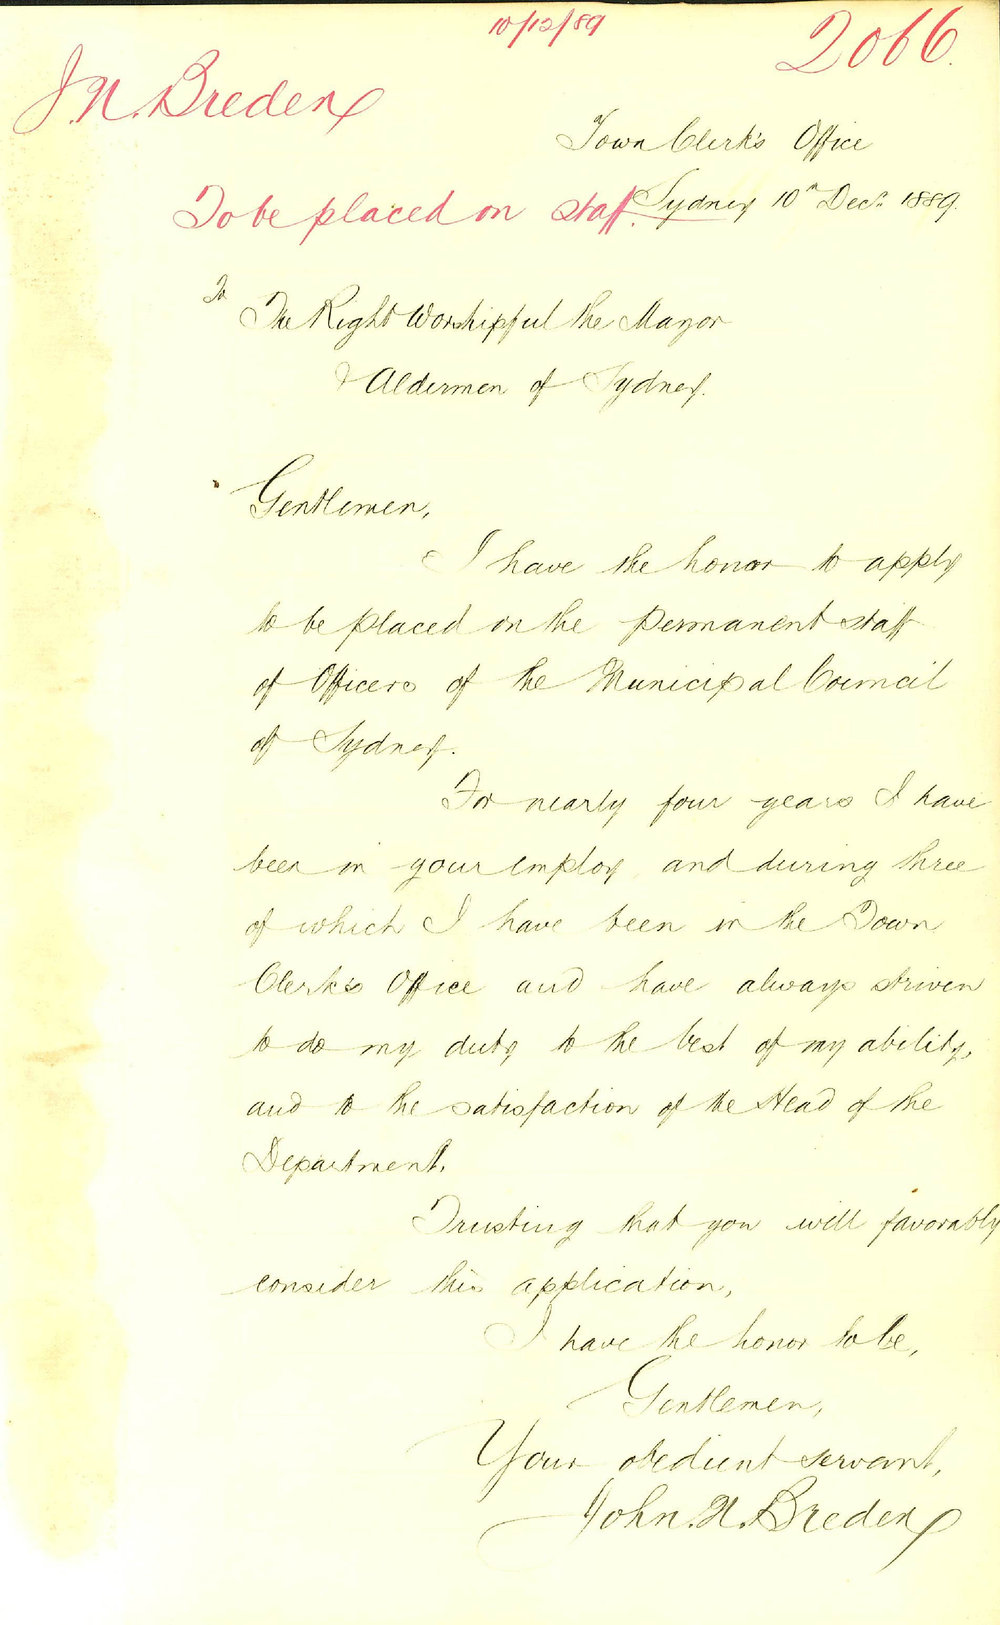 10/12/89
2066.
J. N. Breden
Town Clerk's Office
To be placed on staff.
Sydney 10th Decr. 1889.
To
The Right Worshipful the Mayor
& Aldermen of Sydney.
Gentlemen,
I have the honor to apply
to be placed on the permanent staff
of Officers of the Municipal Council
of Sydney.
For nearly four years I have
been in your employ, and during three
of which I have been in the Town
Clerk's Office and have always striven
to do my duty to the best of my ability,
and to the satisfaction of the Head of the
Department.
Trusting that you will favorably
consider this application,
I have the honor to be,
Gentlemen,
Your obedient servant,
John. N. Breden